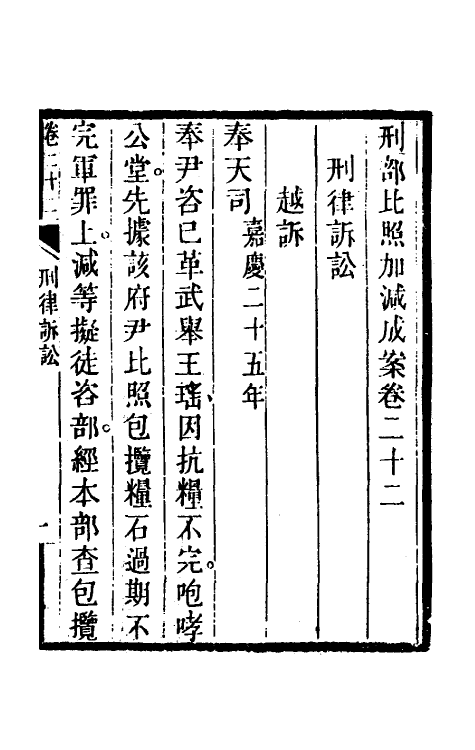 刑部比照加減成案卷二十二
刑律訴訟
越訴
奉天司 嘉慶二十五年
奉尹咨已革武舉王瑤因抗糧不完。咆哮
公堂。先據該府尹比照包攬糧石過期不
完軍罪上。減等擬徒咨部。經本部查包攬
卷二十二 刑律訴訟 一